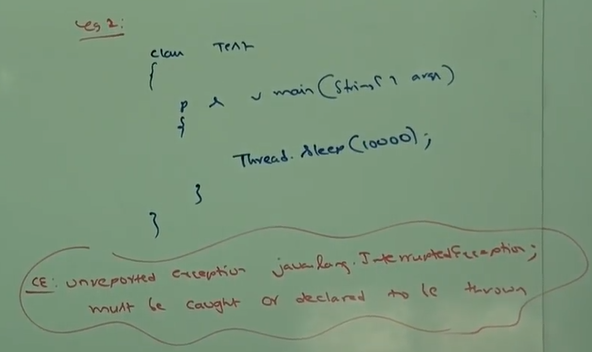 eg 2:
class Test
{
p s v main(String[] args)
{
Thread.sleep(10000);
}
}
CE: unreported exception java.lang.InterruptedException;
must be caught or declared to be thrown